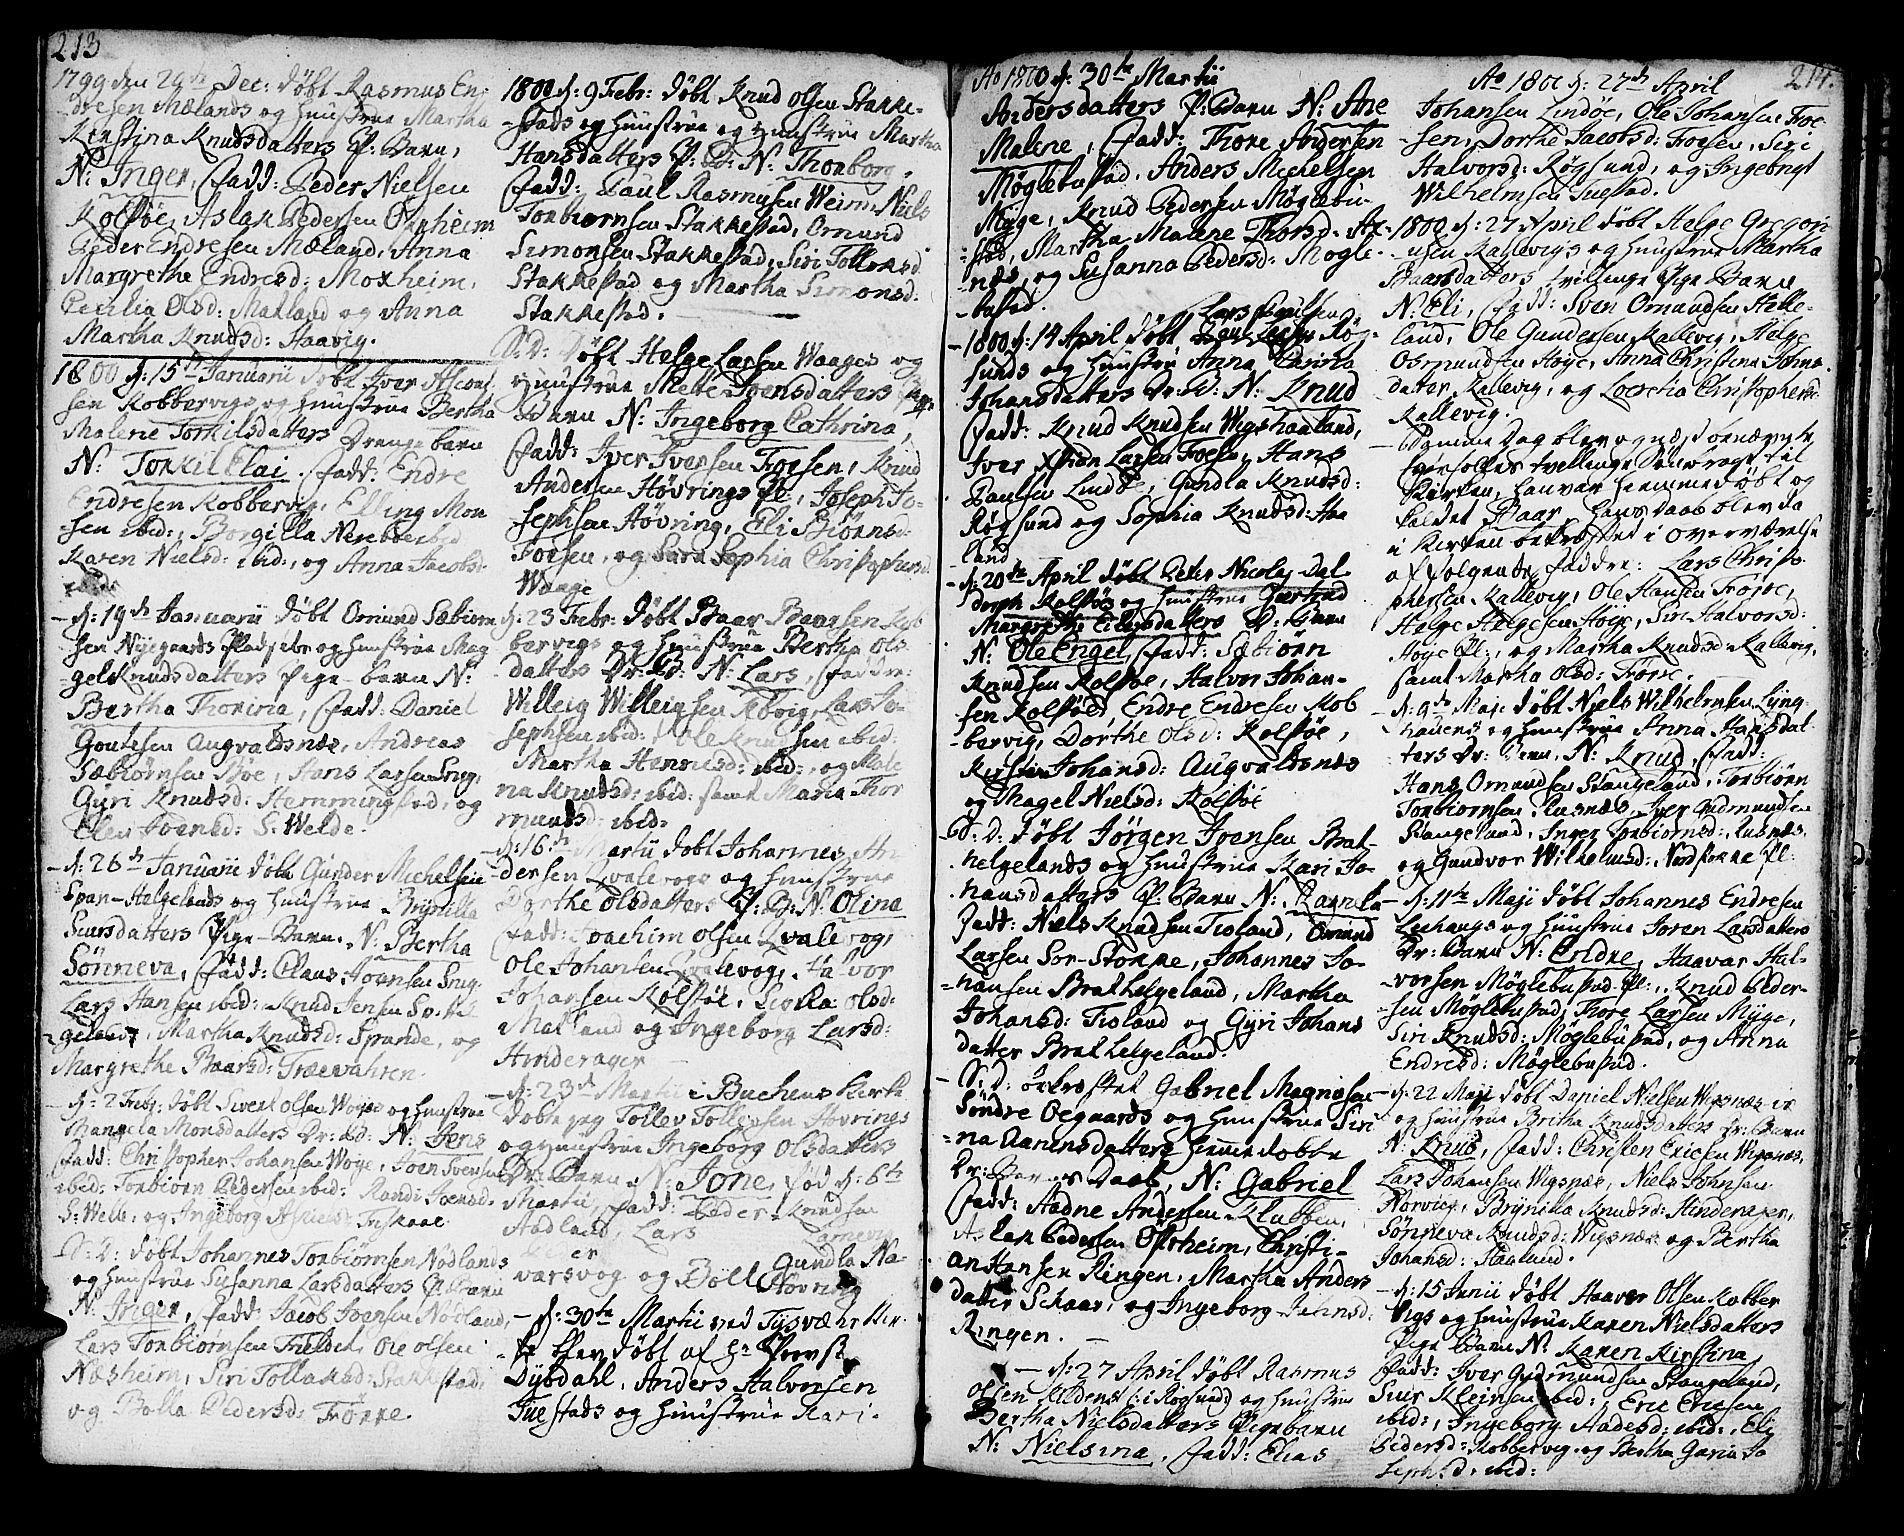 213
1799 den 29de Dec: døbt Rasmus En-
dresen Mælands og Hustrue Martha
Kirstina Knudsdatters P: Barn,
N: Inger, Fadd: Peder Nielsen
Kolstøe, Aslak Pedersen Østrheim
Peder Endresen Mæland, Anna
Margrethe Endresd: Moxheim,
Cecilia Olsd: Makland og Anna
Martha Knudsd: Haavig.
1800 d: 15de Januarii døbt Iver
sen Kobbervigs og Hustrue Bertha
Malene Torkilsdatters Drengebarn
N: Torkil Elai. Fadd: Endre
Endresen Kobbervig, Elling Mon
sen ibid:, Borgilla ibid
Karen Nielsd: ibid:, og Anna Jacobs
- d: 19de Januarii døbt Omund Sæbiørn
sen Nyegaards Pladsebr og Hustrue Mag
gele Knudsdatters Pige-barn N:
Bertha Thorina, Fadd: Daniel
Goutesen Augvaldsnæs, Andreas
Sæbiørnsen Bøe, Hans Larsen Snug,
Gyri Knudsd: Hemmingstad, og
Elen Joensd: S: Welde.
- d: 26de Januarii døbt Gunder Michelsen
Span-Helgelands og Hustrue Brynilla
Siursdatters Pige-Barn. N: Bertha
Sønneva, Fadd: Claus Joensen Snug,
Lars Hansen ibid: Knud Jensen
geland, Martha Knudsd: Spande, og
Margrethe Baarsd: Trævahren.
- d: 2 Febr: døbt Sivert Olsen Woges og Hustrue
Mansela Monsdatters Dr: Bd: N: Jens
Fadd: Christopher Johansen Woge, Joen Svensen
ibid: Torbiørn Pedersen ibid: Randi Joensd:
S: Welde, og Ingeborg Fiskaae.
S: D: døbt Johannes Torbiørnsen Nødlands
og Hustrue Susanna Larsdatters P: Barn
N: Inger, Fadd: Jacob Joensen Nødland,
Lars Torbiørnsen Ole Olsen
Næsheim, Siri Tollaksd: Stakkestad,
og Bolla Pedersd: Førre.
1800 d: 9 Febr: døbt Knud Olsen Stakke-
stads og Hustrue og Hustrue Martha
Hansdatters P: B: N: Thorborg.
Fadd: Paul Rasmusen Weim, Niels
Torbiørnsen Stakkestad, Omund
Simonsen Stakkestad, Siri Tolleksd:
Stakkestad og Martha Simonsd:
Stakkestad.
S: D: døbt Helge Larsen Waages og
Hustrue Mette Joensdatters Pige
Barn N: Ingeborg Cathrina,
Fadd: Iver Iversen Foesen, Knud
Andersen Høvrings Pl:, Joseph Jo-
sephsen Høvring, Eli Biørnsd:
Foesen, og Sara Sophia Christophersd
Waage
d: 23 Febr: døbt Baar Baarsen Kob
bervigs og Hustrue Bertha Ols-
datters Dr: Bd: N: Lars, Fadder:
Willeig Willeigsen Kbvig, Lars Jo-
sephsen ibid: Ole Knudsen ibid:
Martha Hennesd: ibid:, og Male
na Knudsd: ibid: samt Maria Thor
mundsd: ibid:
d: 16de Martii døbt Johannes An
dersen Qvalevogs og Hustrue
Dorthe Olsdatters P: B: N: Olina
Fadd: Joachim Olsen Qvalevog,
Ole Johansen Qvalevog, Halvor
Johansen Kolstøe, Olsd:
Makland og Ingeborg Larsd:
Hinderager
- d: 23de Martii i Buchens Kirke
døbte jeg Tollev Tollevsen Høvrings
og Hustrue Ingeborg Olsdatters
Dr: Barn N: Jone, fød d: 6te
Martii, Fadd: Peder Knudsen
Aadland, Lars
varsvog og Boll Gundla Na-
Høvring
- d: 30te Martii ved Tysvæhr Kir
ke blev døbt af Hr Provst
Dybdahl, Anders Halvorsen
Tuestads og Hustrue Kari
Ao 1800 d: 30te Martii
Andersdatters P: Barn N: Ane
Malene, Fadd: Thore Andersen
Møglebustad, Anders Michelsen
Myge, Knud Pedersen Møglebu-
stad, Martha Malene Thorsd: Ax-
næs, og Susanna Pedersd: Mogle
bustad.
Lars Poulsen
- 1800 d: 14 April døbt Røg-
sunds og Hustrue Anna Carina
Johansdatters Dr: B: N: Knud
Fadd: Knud Knudsen Wigshaaland,
Iver Larsen Foesen, Hans
Paulsen Lindøe, Gundla Knudsd:
Røgsund og Sophia Knudsd: Haa
land
- d: 20de April døbt Peter Nicolay Dal
dorph Kolstøes og Hustrue Giertrud
Margrethe Dr: Barn
N: Ole Engel, Fadd: Sæbiørn
Knudsen Kolstøe, Halvor Johan-
sen Kolstøe, Endre Endresen Kob
bervig, Dorthe Olsd: Kolstøe,
Kirsten Johansd: Augvaldsnæs
og Magel Nielsd: Kolstøe
S: D: døbt Jørgen Joensen Brat-
helgelands og Hustrue Kari Jo-
hansdatters P: Barn N: Ragnila
Fadd: Niels Knudsen Tisland, Omund
Larsen Sor-Stokke, Johannes Jo-
hansen Brathelgeland, Martha
Johansd: Tisland og Gyri Johans
datter Brathelgeland.
- S: D: økræstet Gabriel Magnusen
Søndre Oegaards og Hustrue Siri
na Aanensdatters hiemmedøbte
Dr: Barns Daab, N: Gabriel
Fadd: Aadne Andersen Klubben,
Aslak Pedersen Østrheim, Christi-
an Hansen Ringen, Martha Anders
datter Schaar, og Ingeborg
Ringen.
- d: 27 April døbt Rasmus
Olsen i Røgsund og Hustrue
Bertha Nielsdatters Pigebarn
N: Nielsina, Fadd: Elias
214.
Ao 1800 d: 27de April
Johansen Lindøe, Ole Johansen Foe-
sen, Dorthe Jacobsd: Foesen, Siri
Halvorsd: Røgsund, og Ingebrigt
Wilhelmsen Tuestad.
1800 d: 27 April døbt Helge Gregori
usen Kallevigs og Hustrue Martha
Baarsdatters tvillinge Pige Barn
N: Eli, Fadd: Sven Omundsen
land, Ole Gundersen Kallevig, Helge
Osmundsen Høye, Anna Christina Johns
datter Kallevig, og Christophersd:
Kallevig.
- Samme Dag blev ovenbenævnte
Forældres tvillinge Søn bragt til
Kirken, han var hiemmedøbt og
kaldet Baar. Hans Daab blev da
i Kirken økræstet i overværelse
af følgende Fadder: Lars Christo
phersen Kallevig, Ole Hansen Frøye,
Helge Helgesen Høye, Siri Halvorsd:
Høye Pl:, og Martha Knudsd Kallevig,
samt Martha Olsd: Førre.
- d: 9de Maji døbt Niels Wilhelmsen Lyng-
haugens og Hustrue Anna Hansdat
ters Dr: Barn, N: Knud, Fadd:
Hans Omundsen Stangeland, Torbiørn
Torbiørnsen Rusnæs, Iver Gudmundsen
Stangeland, Inger Torbiørnsd: Rusnæs
og Gundvor Wilhelmsd: Nordstokke Pl:
- d: 11te Maji døbt Johannes Endresen
Leehaugs og Hustrue Joren Larsdatters
Dr: Barn N: Endre, Haavar Hal-
vorsen Møglebustad Pl:, Knud Peder-
sen Møglebustad, Thore Larsen Myge,
Siri Knudsd: Møglebustad, og Anna
Endresd: Møglebustad.
- d: 22 Maji døbt Daniel Nielsen Wigsnæs
og Hustrue Britha Knudsdatters Dr: Barn
N: Knud, Fadd: Christen Ericsen Wigsnæs,
Lars Johansen Wigsnæs, Niels Johnsen
Norvig, Brynilla Knudsd: Hinderager,
Sønneva Knudsd: Wigsnæs og Bertha
Johansd: Haaland.
- d: 15 Junii døbt Haaver Olsen Kobber
vigs og Hustrue Karen Nielsdatters
Pige Barn N: Karen Kirstina
Fadd: Iver Gudmundsen Stangeland,
Siur Kleinsen ibid:, Eric Ericsen
ibid:, Ingeborg Aadesd: ibid:, Eli
Pedersd: Kobbervig, og Bertha Garia Jo
sephsd, ibid: